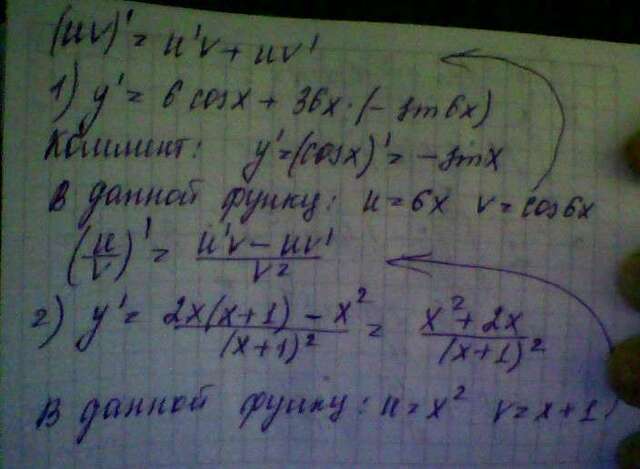 (uv)' = u'v + uv'
1) y' = 6 cosx + 36x·(- sin6x)
Коммент: y'=(cosx)' = - sinx
В данной функц: u=6x v=cos6x
(u/v)' = (u'v - uv')/v²
2) y' = (2x(x+1) - x²)/(x+1)² = (x²+2x)/(x+1)²
В данной функц: u=x² v=x+1